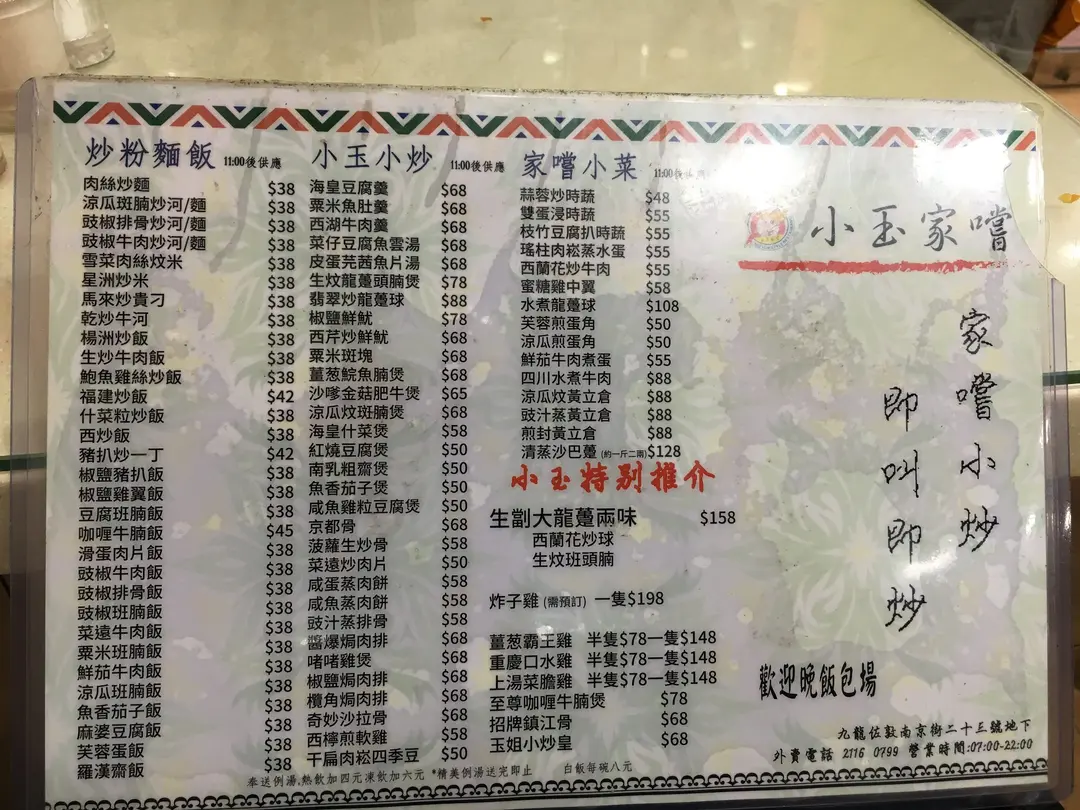 炒粉麵飯 11:00後供應
肉絲炒麵 $38
涼瓜斑腩炒河/麵 $38
豉椒排骨炒河/麵 $38
豉椒牛肉炒河/麵 $38
雪菜肉絲炆米 $38
星洲炒米 $38
馬來炒貴刁 $38
乾炒牛河 $38
楊洲炒飯 $38
生炒牛肉飯 $38
鮑魚雞絲炒飯 $38
福建炒飯 $42
什菜粒炒飯 $38
西炒飯 $38
豬扒炒一丁 $42
椒鹽豬扒飯 $38
椒鹽雞翼飯 $38
豆腐班腩飯 $38
咖喱牛腩飯 $45
滑蛋肉片飯 $38
豉椒牛肉飯 $38
豉椒排骨飯 $38
豉椒班腩飯 $38
菜遠牛肉飯 $38
粟米班腩飯 $38
鮮茄牛肉飯 $38
涼瓜班腩飯 $38
魚香茄子飯 $38
麻婆豆腐飯 $38
芙蓉蛋飯 $38
羅漢齋飯 $38
小玉小炒 11:00後供應
海皇豆腐羹 $68
粟米魚肚羹 $68
西湖牛肉羹 $68
菜仔豆腐魚雲湯 $68
皮蛋芫茜魚片湯 $68
生炆龍躉頭腩煲 $78
翡翠炒龍躉球 $88
椒鹽鮮魷 $78
西芹炒鮮魷 $68
粟米斑塊 $68
薑葱鯇魚腩煲 $68
沙嗲金菇肥牛煲 $65
涼瓜炆斑腩煲 $68
海皇什菜煲 $58
紅燒豆腐煲 $50
南乳粗齋煲 $50
魚香茄子煲 $50
咸魚雞粒豆腐煲 $50
京都骨 $68
菠蘿生炒骨 $58
菜遠炒肉片 $50
咸蛋蒸肉餅 $58
咸魚蒸肉餅 $58
豉汁蒸排骨 $58
醬爆焗肉排 $68
啫啫雞煲 $68
椒鹽焗肉排 $68
欖角焗肉排 $68
奇妙沙拉骨 $68
西檸煎軟雞 $58
干扁肉崧四季豆 $50
家嚐小菜 11:00後供應
蒜蓉炒時蔬 $48
雙蛋浸時蔬 $55
枝竹豆腐扒時蔬 $55
瑤柱肉崧蒸水蛋 $55
西蘭花炒牛肉 $55
蜜糖雞中翼 $58
水煮龍躉球 $108
芙蓉煎蛋角 $50
涼瓜煎蛋角 $50
鮮茄牛肉煮蛋 $55
四川水煮牛肉 $88
涼瓜炆黃立倉 $88
豉汁蒸黃立倉 $88
煎封黃立倉 $88
清蒸沙巴躉 (約一斤二兩) $128
小玉特別推介
生劏大龍躉兩味 $158
西蘭花炒球
生炆班頭腩
炸子雞 (需預訂) 一隻$198
薑葱霸王雞 半隻$78一隻$148
重慶口水雞 半隻$78一隻$148
上湯菜膽雞 半隻$78一隻$148
至尊咖喱牛腩煲 $78
招牌鎮江骨 $68
玉姐小炒皇 $68
奉送例湯,熱飲加四元凍飲加六元 *精美例湯送完即止 白飯每碗八元
小玉家嚐
家嚐小炒
即叫即炒
歡迎晚飯包場
九龍佐敦南京街二十三號地下
外賣電話 2116 0799 營業時間:07:00-22:00